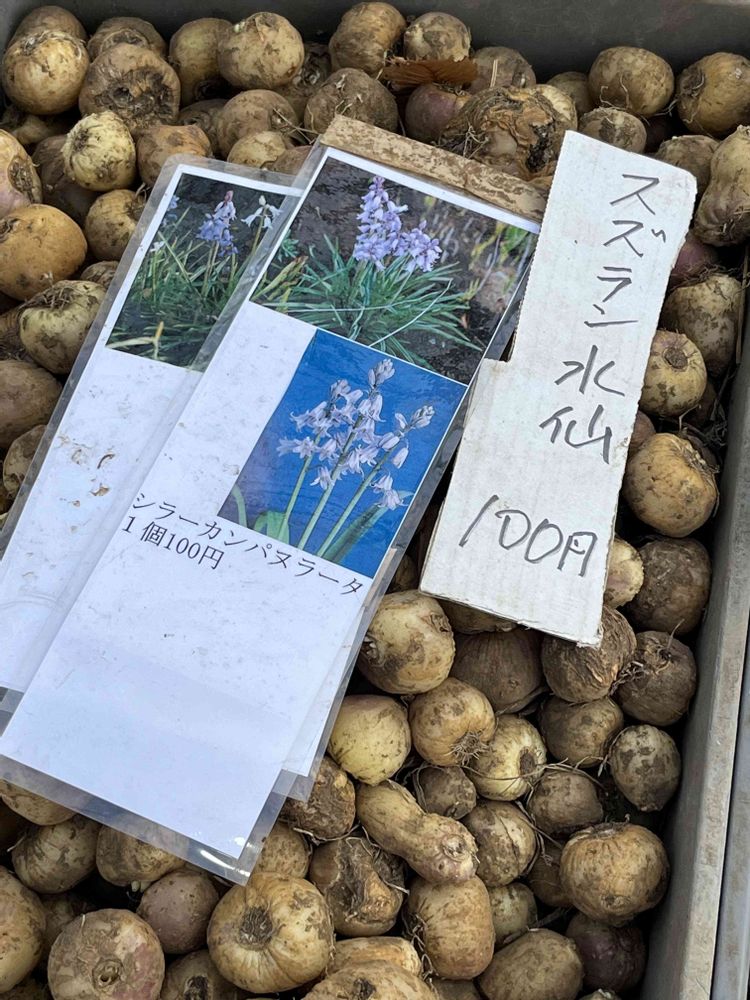 シラーカンパヌラータ
1個100円
スズラン水仙
100円